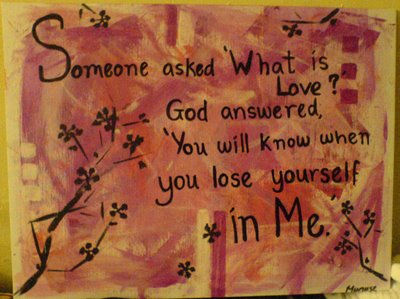 Someone asked 'What is
Love?'
God answered,
'You will know when
you lose yourself
in Me.'